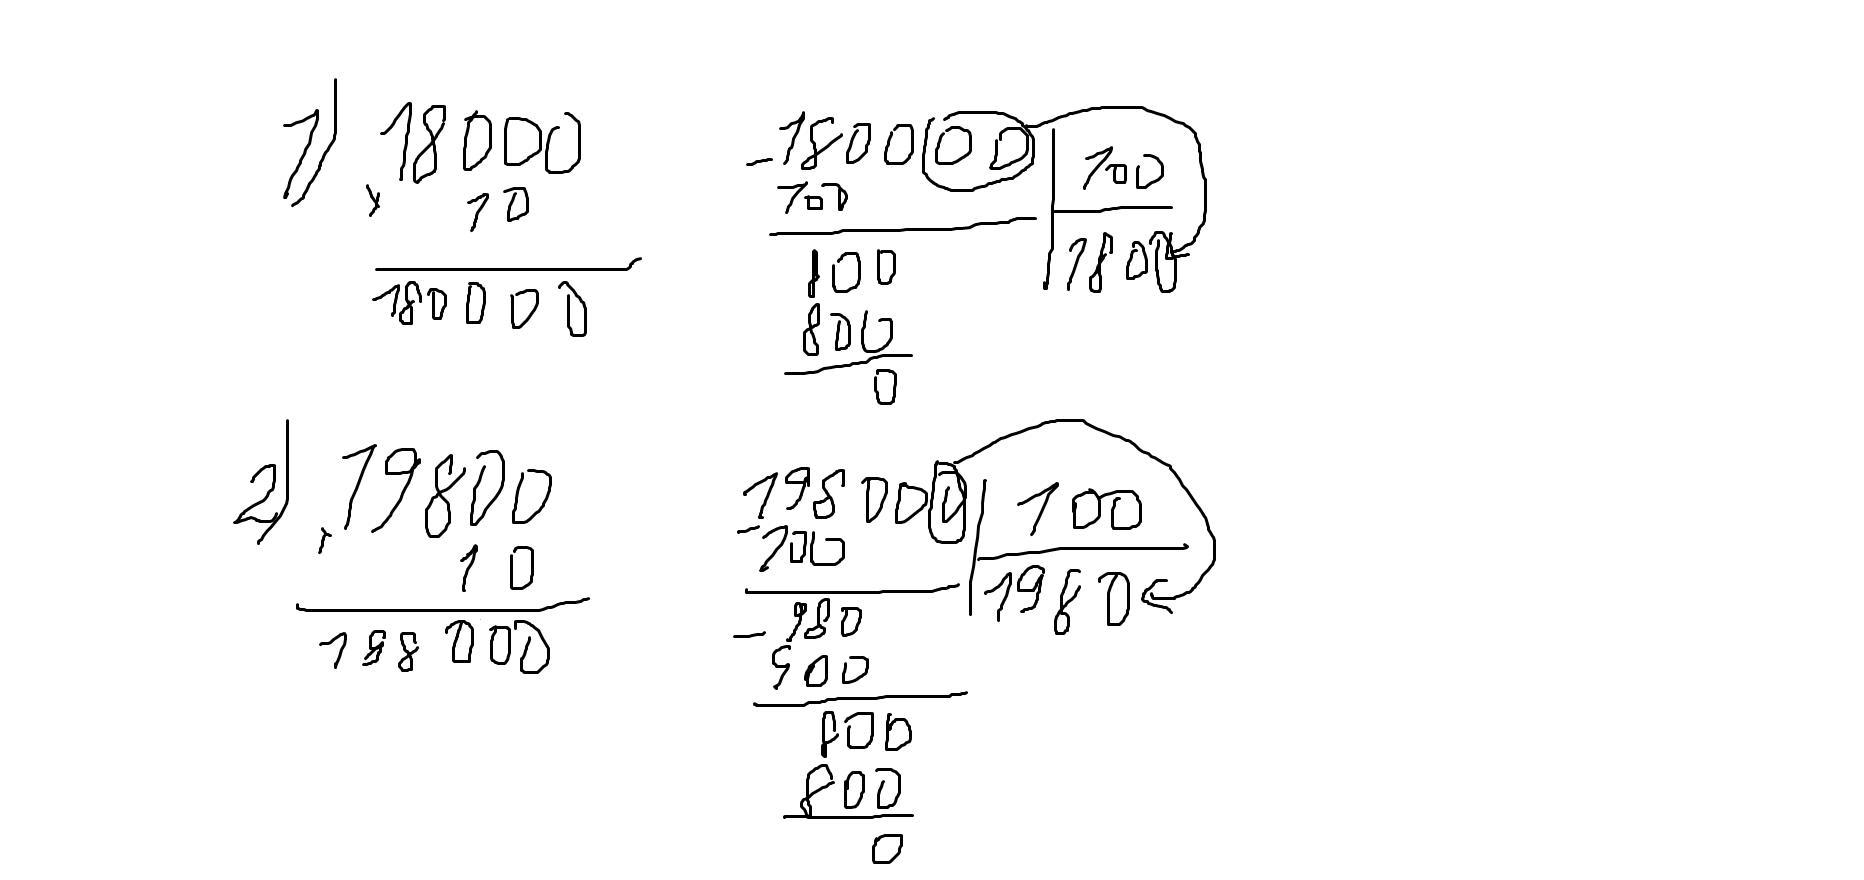 1) 18000
× 10
180000
- 180000 | 100
100 | 1800
800
800
0
2) 19800
× 10
198000
- 198000 | 100
100 | 1980
- 980
900
800
800
0